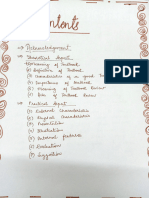 Contents
Acknowledgement
Theoretical Aspect
Meaning of Textbook
Definition of Textbook
Characteristics of a good Textbook
Importance of Textbook
Meaning of Textbook Review
Need of Book Review
Practical Aspect
External Characteristics
Physical Characteristics
Presentation
Illustration
Internal features
Evaluation
Suggestion